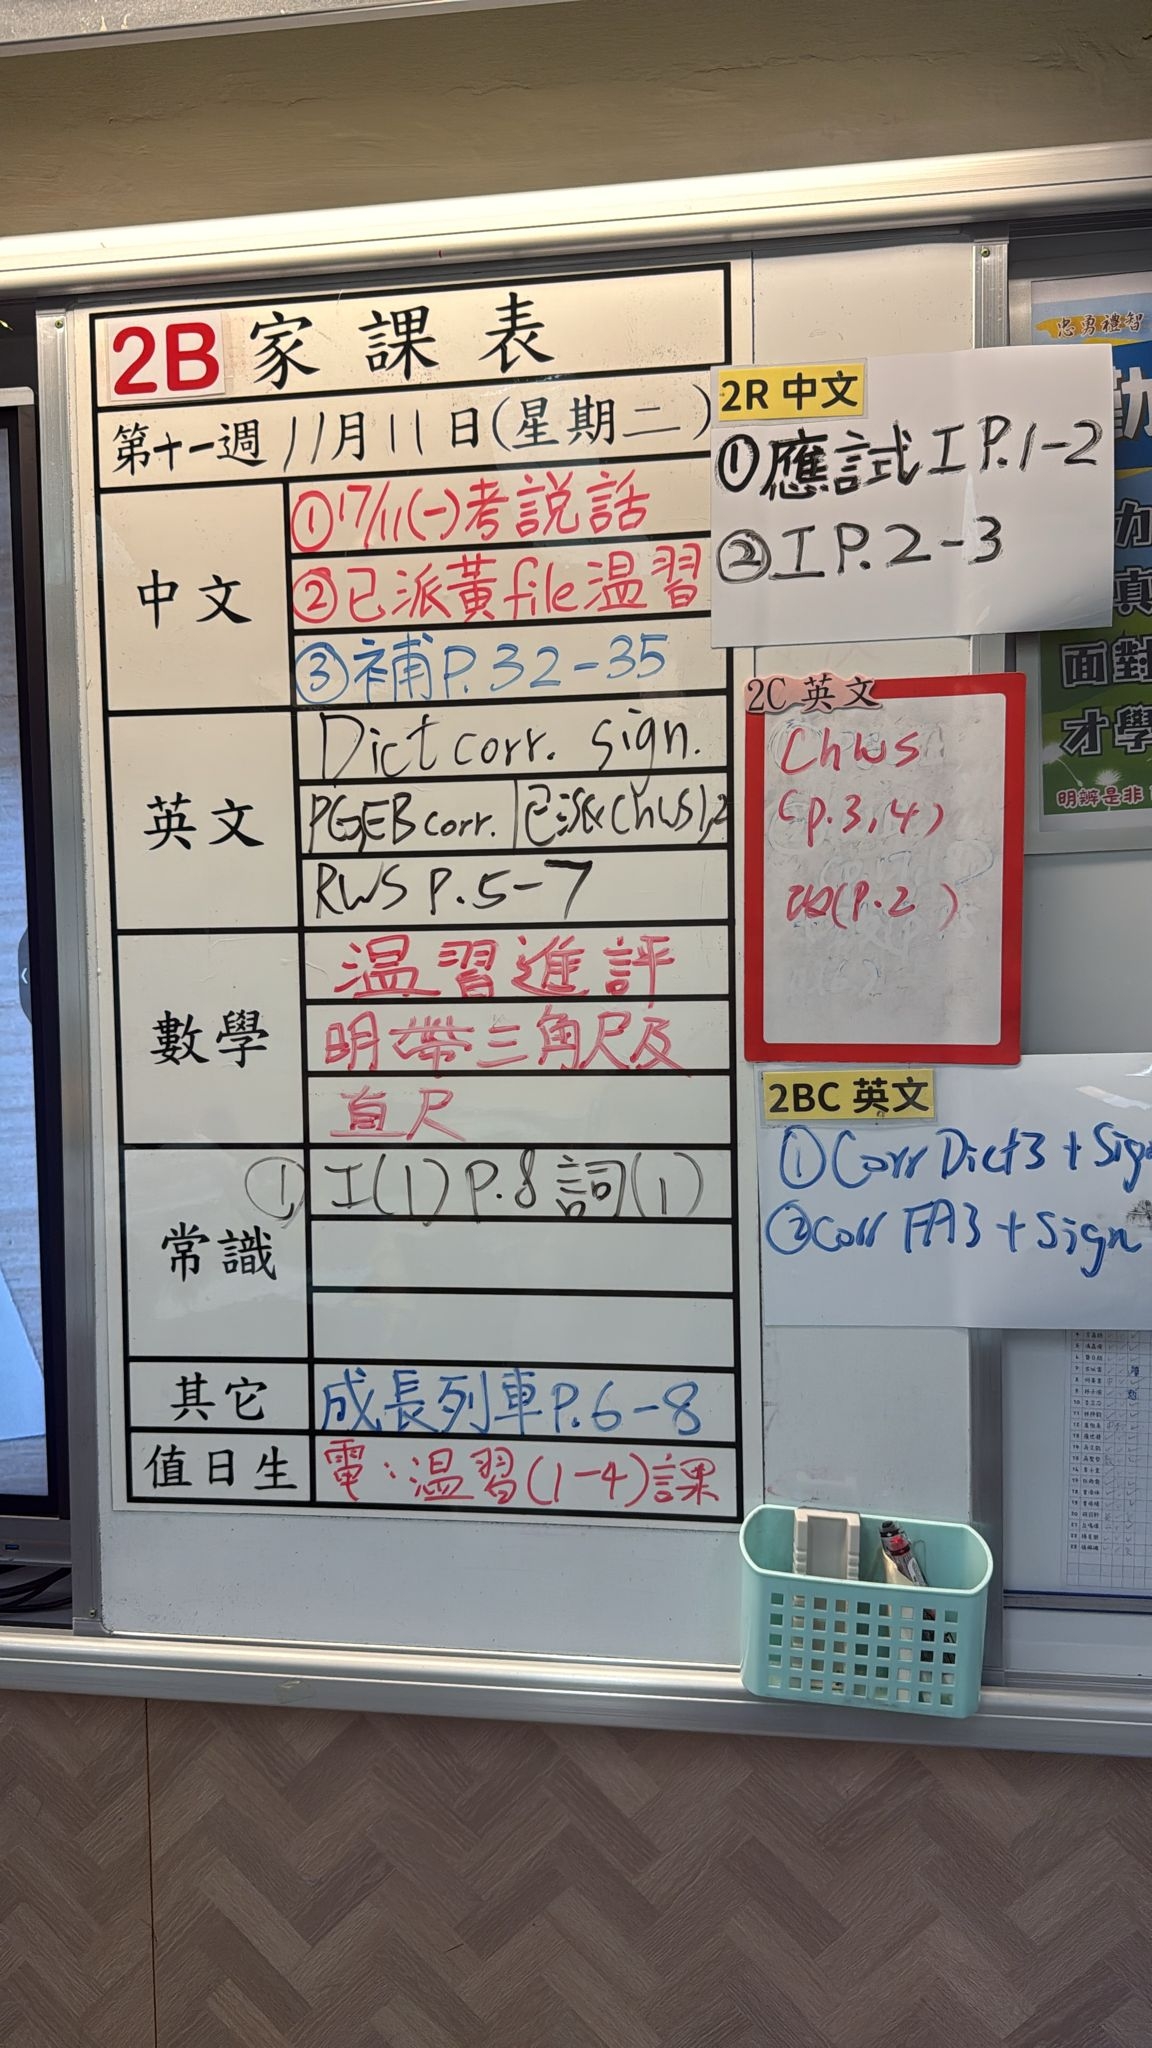 2B 家課表
第十一週 11月11日(星期二)
中文
①17/11(一)考説話
②已派黃file温習
③補P.32-35
英文
Dict corr. sign.
PGEB corr. 已派Chws1,2
RWS P.5-7
數學
温習進評
明帶三角尺及
直尺
常識
① I(1)P.8 詞(1)
其它
成長列車P.6-8
值日生
電:温習(1-4)課
2R 中文
①應試IP.1-2
②IP.2-3
2C 英文
Chws
(p.3,4)
改(P.2)
2BC 英文
①Corr Dict3 + Sign
②Corr FA3 + Sign
忠勇禮智
力
真
面對
才學
明辨是非